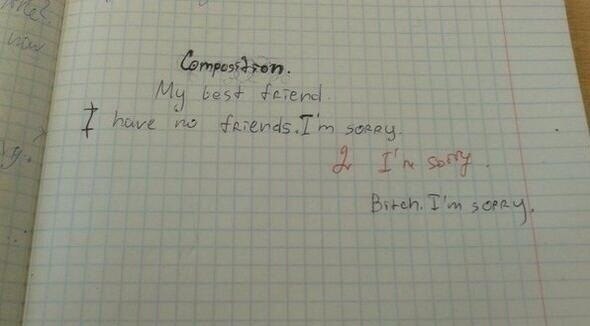 Composition.
My best friend.
I have no friends. I'm sorry.
2 I'm sorry.
Bitch. I'm sorry.